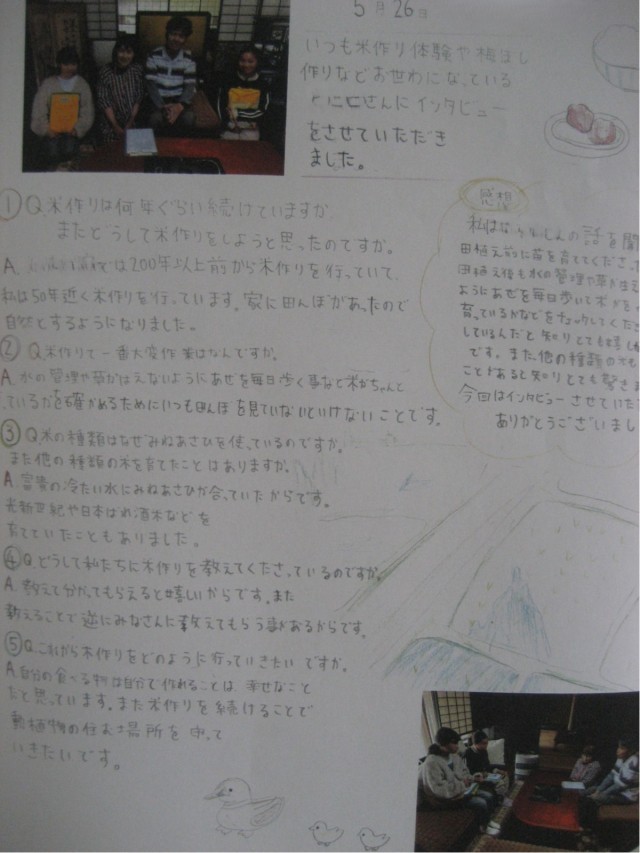 5月26日
いつも米作り体験や梅ぼし
作りなどお世わになっている
さんにインタビュー
をさせていただき
ました。
①Q米作りは何年ぐらい続けていますか
またどうして米作りをしようと思ったのですか。
A. では200年以上前から米作りを行っていて、
私は50年近く米作りを行っています。家に田んぼがあったので
自然とするようになりました。
②Q米作りで一番大変作業はなんですか。
A.水の管理や草がはえないようにあぜを毎日歩く事など米がちゃんと
ているかを確かめるためにいつも田んぼを見ていないといけないことです。
③Q米の種類はなぜみねあさひを使っているのですか。
また他の種類の米を育てたことはありますか。
A.富貴の冷たい水にみねあさひが合っていたからです。
光新世紀や日本ばれ酒米などを
育てていたこともありました。
④Q.どうして私たちに米作りを教えてくださっているのですか。
A.教えて分かってもらえると嬉しいからです。また
教えることで逆にみなさんに教えてもらう事があるからです。
⑤Q.これから米作りをどのように行っていきたいですか。
A.自分の食べる物は自分で作れることは幸せなこと
だと思っています。また米作りを続けることで
動植物の住む場所を守って
いきたいです。
感想
私は の話を聞
田植え前に苗を育ててくださっ
田植え後も水の管理や草が生え
ようにあぜを毎日歩いて米が
育っているかなどをチェックしてくださ
しているんだと知りとても嬉し
です。また他の種類の米も
ことがあると知りとても驚き
今回はインタビューさせていた
ありがとうございまし